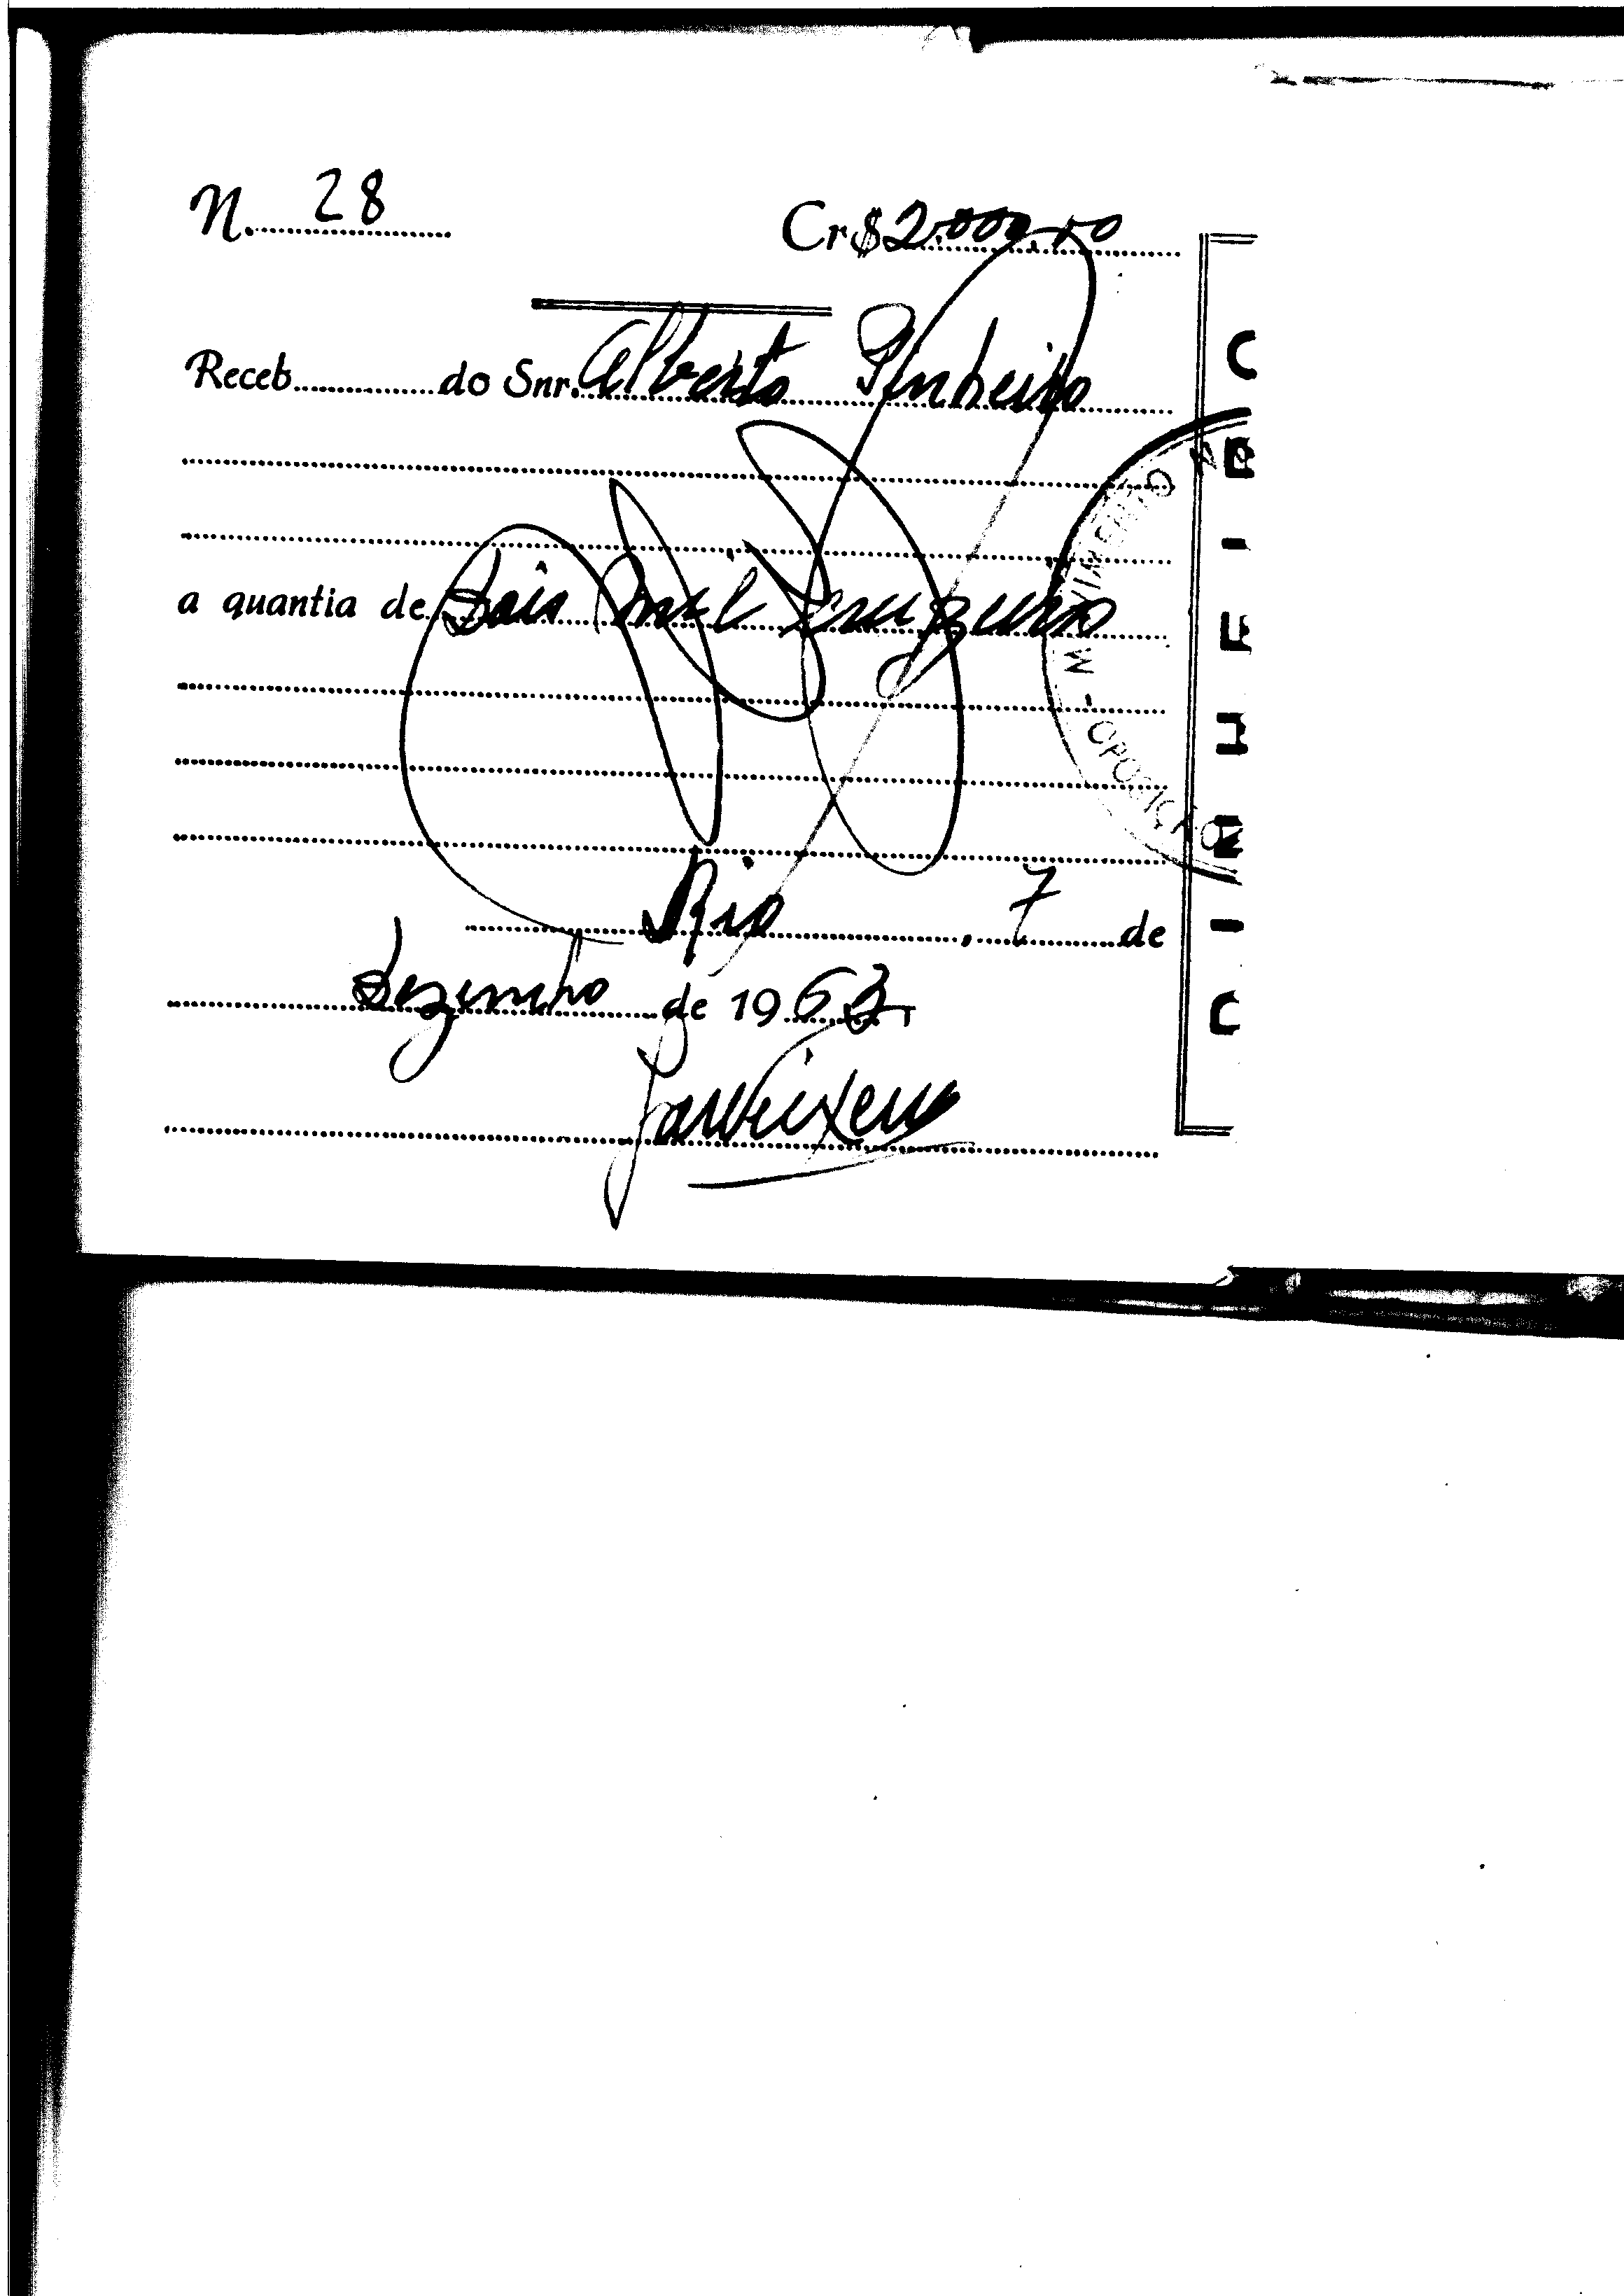 N. 28
Cr$ 2.000,00
Receb do Snr. Alberto Pinheiro
a quantia de Dois mil cruzeiros
Rio, 7 de
Dezembro de 1963
VIMENTO
M - OPOSIÇÃO